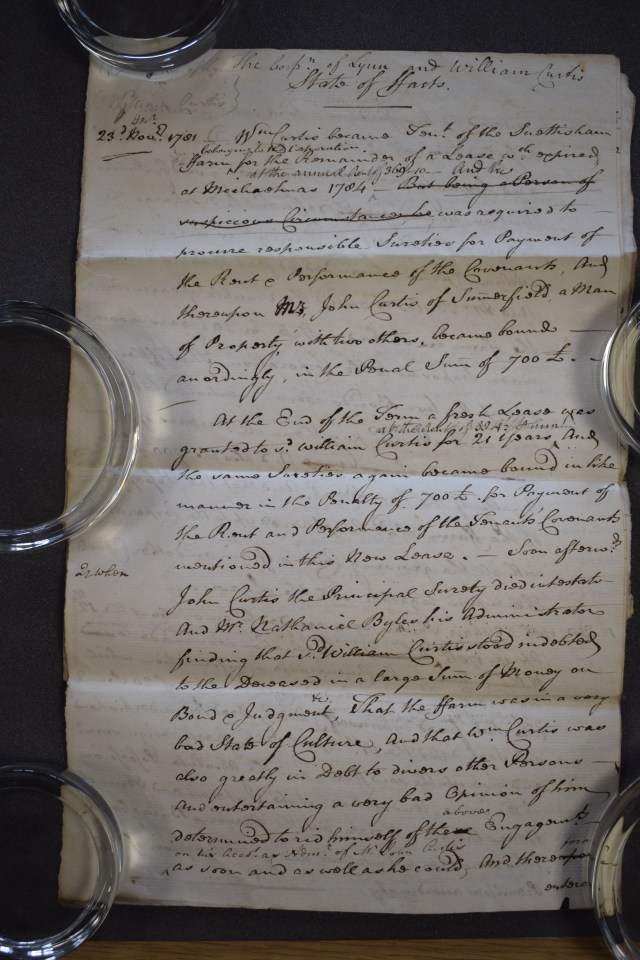 The Corpn. of Lynn and William Curtis
State of Ffacts.
William Curtis
23d. Novr. 1781 Wm Curtis became Tent. of the Snettisham
belonging to the Corporation
Ffarm for the Remainder of a Lease wch. expired
at the annual Rent of 369 And he
at Michaelmas 1784 — But being a Person of
suspicious Circumstances he was required to
procure responsible Sureties for Payment of
the Rent & Performance of the Covenants, And
thereupon Mr. John Curtis of Sumerfield, a Man
of Property, with two others, became bound —
accordingly, in the Penal Sum of 700£. —
At the End of the Term a fresh Lease was
at the Rent of
granted to sd. William Curtis for 21 Years, And
the same Sureties again became bound in like
manner in the Penalty of 700£. for Payment of
the Rent and Performance of the Tenants Covenants
mentioned in this New Lease. — Soon afterwds.
Qy when
John Curtis the Principal Surety died intestate
And Mr. Nathaniel Byles his Administrator
finding that sd. William Curtis stood indebted
to the Deceased in a large Sum of Money on
Bond & Judgment, &c That the Ffarm was in a very
bad State of Culture, And that Wm. Curtis was
also greatly in Debt to divers other Persons —
And entertaining a very bad Opinion of him
above
determined to rid himself of these Engagemts.
on his Acct. as Admr. of Mr. John Curtis
as soon and as well as he could, And thereupon
entered